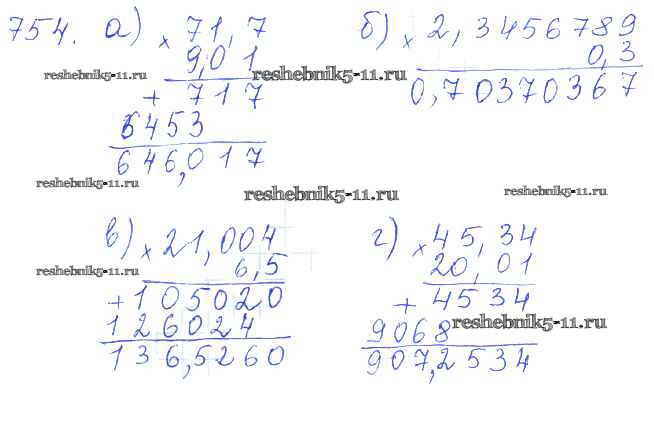 754. а) × 71,7
9,01
+ 717
6453
646,017
б) × 2,3456789
0,3
0,70370367
в) × 21,004
6,5
+ 105020
126024
136,5260
г) × 45,34
20,01
+ 4534
9068
907,2534
reshebnik5-11.ru
reshebnik5-11.ru
reshebnik5-11.ru
reshebnik5-11.ru
reshebnik5-11.ru
reshebnik5-11.ru
reshebnik5-11.ru